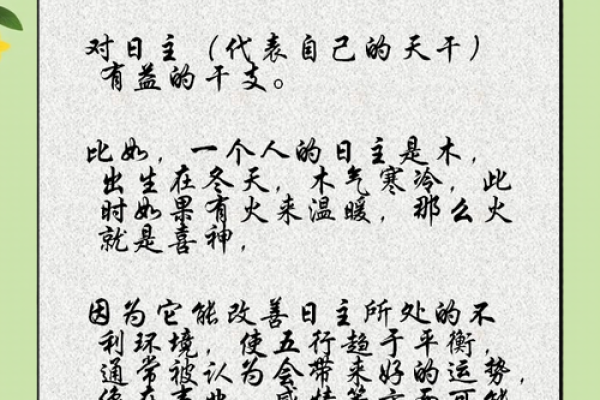 对日主（代表自己的天干）
有益的干支。
比如，一个人的日主是木，
出生在冬天，木气寒冷，此
时如果有火来温暖，那么火
就是喜神，
因为它能改善日主所处的不
利环境，使五行趋于平衡，
通常被认为会带来好的运势，